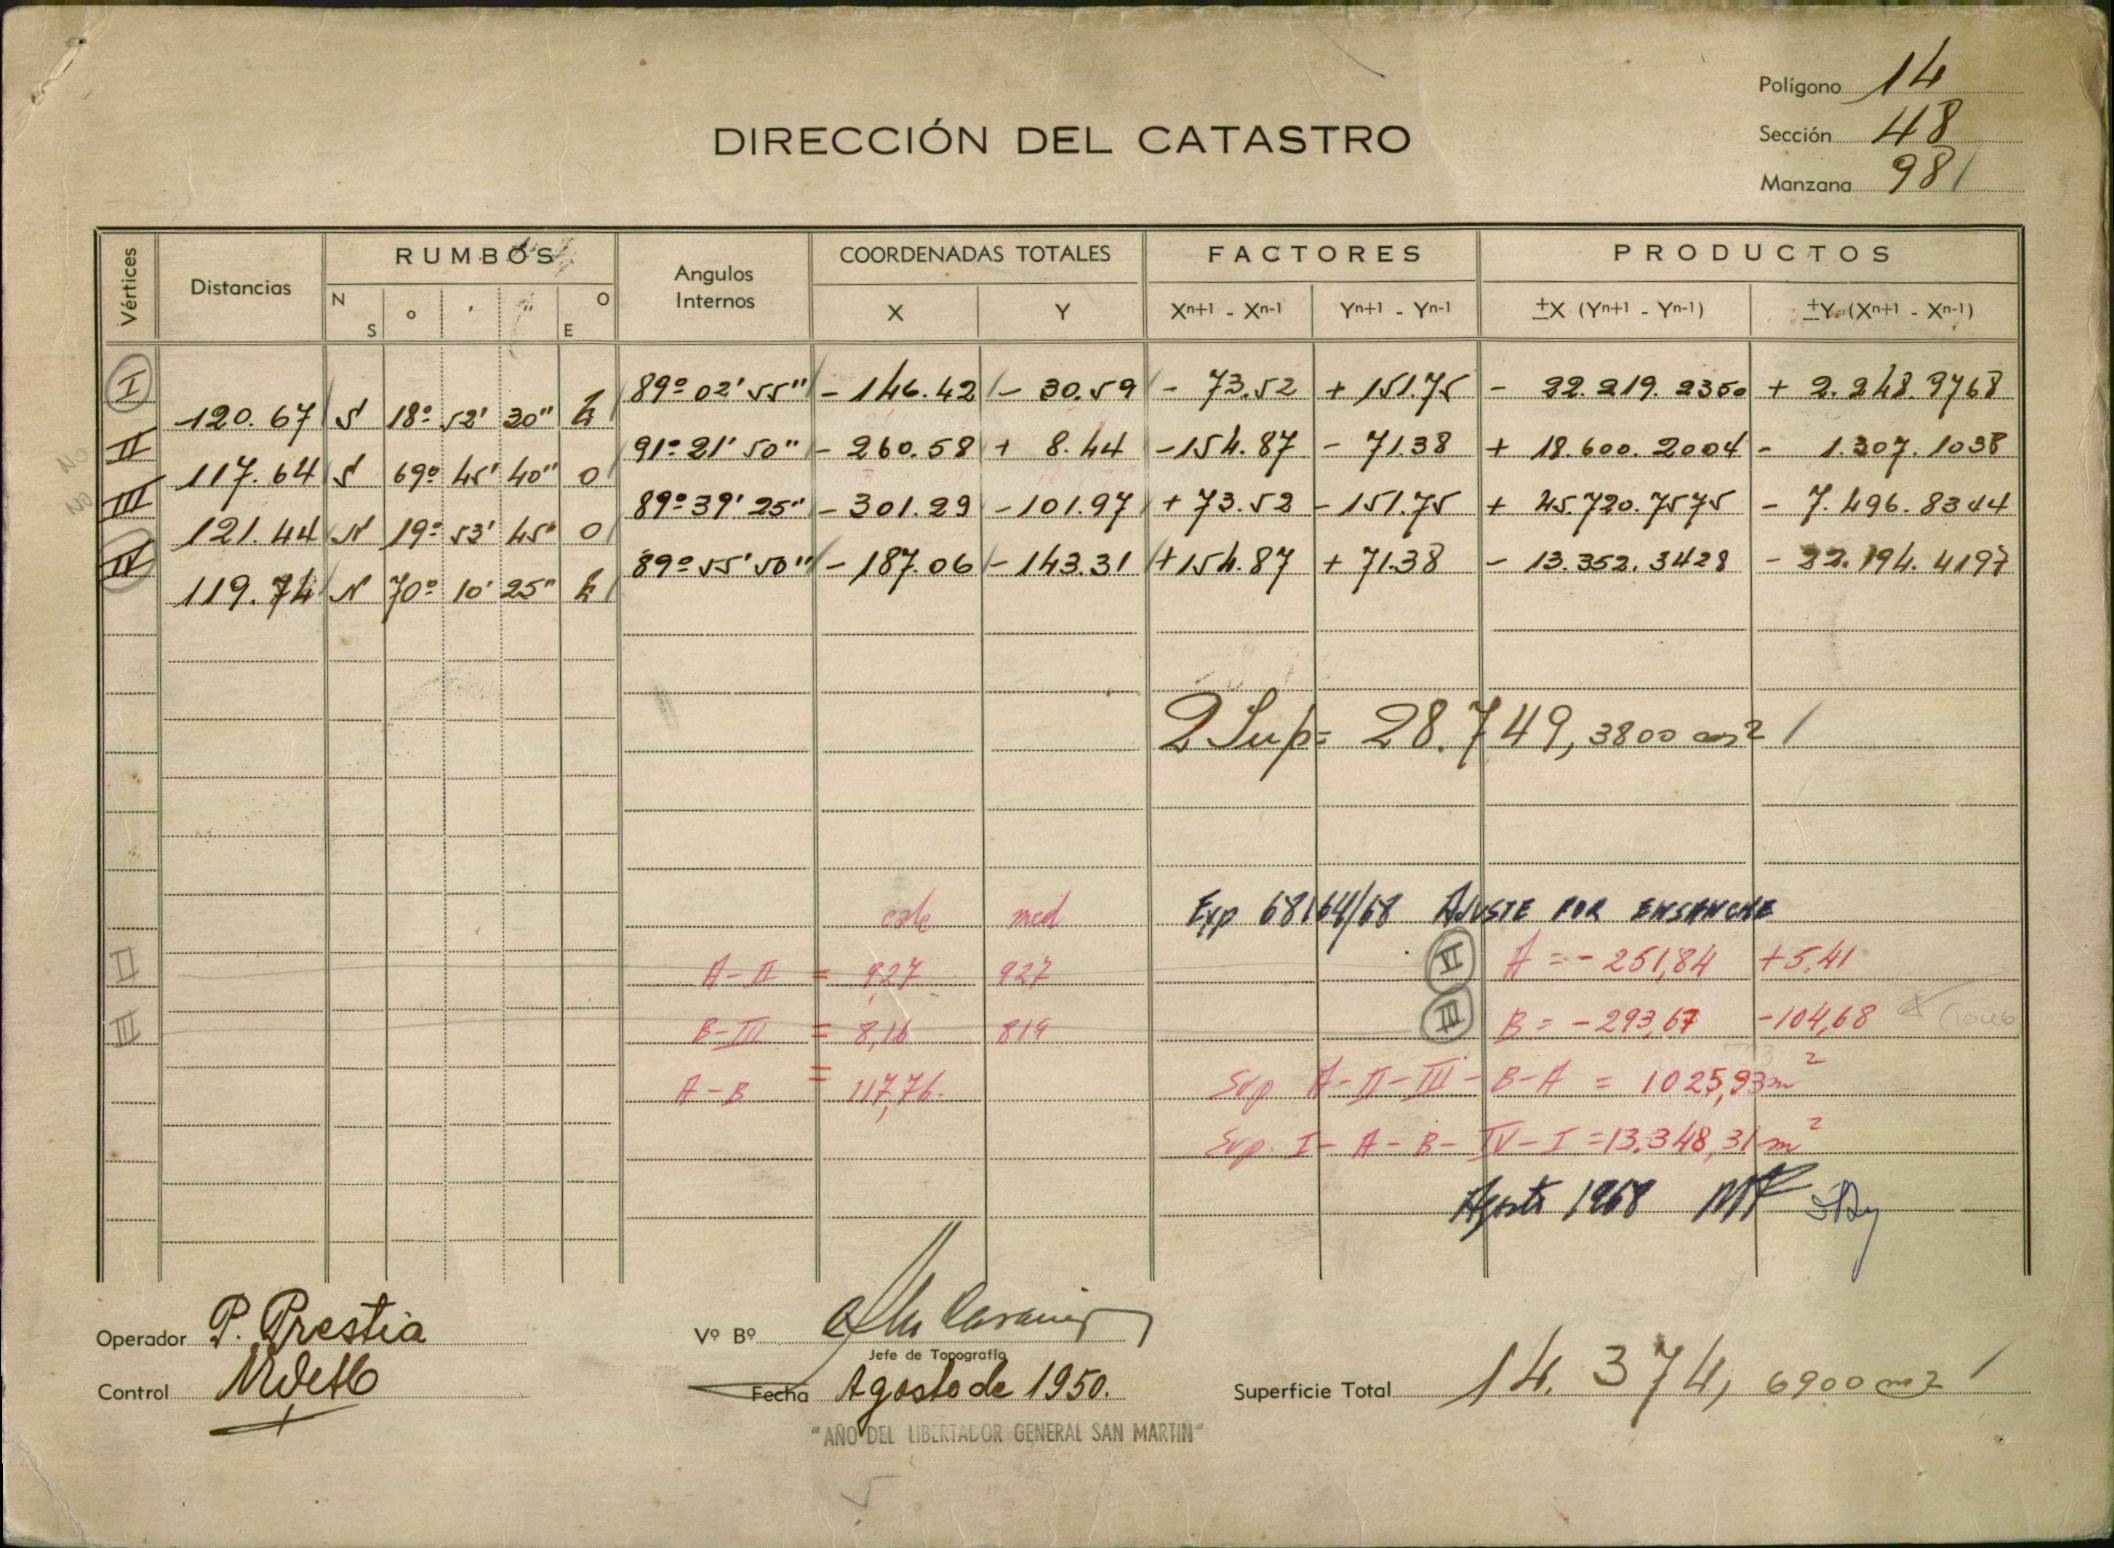 Polígono 14
DIRECCIÓN DEL CATASTRO
Sección 48
Manzana 981
Vértices Distancias RUMBOS Angulos Internos COORDENADAS TOTALES FACTORES PRODUCTOS
N S ° ' " O E X Y Xn+1 - Xn-1 Yn+1 - Yn-1 ±X (Yn+1 - Yn-1) ±Y (Xn+1 - Xn-1)
I 89º 02' 55" - 146.42 - 30.59 - 73.52 + 151.75 - 22.219.2350 + 2.248.9768
120.67 S 18º 52' 30" E
II 91º 21' 50" - 260.58 + 8.44 - 154.87 - 71.38 + 18.600.2004 - 1.307.1038
117.64 S 69º 45' 40" O
III 89º 39' 25" - 301.29 - 101.97 + 73.52 - 151.75 + 45.720.7575 - 7.496.8344
121.44 N 19º 53' 45" O
IV 89º 55' 50" - 187.06 - 143.31 + 154.87 + 71.38 - 13.352.3428 - 22.194.4197
119.74 N 70º 10' 25" E
2 Sup = 28.749,3800 m2
calc med Exp 68164/68 AJUSTE POR ENSANCHE
II A - II = 9,27 927 A = - 251,84 +5,41
III B - III = 8,16 819 III B = - 293,67 - 104,68
A - B = 117,76. Sup A - II - III - B - A = 1025,93 m2
Sup I - A - B - IV - I = 13.348,31 m2
Agosto 1968
Operador P. Prestia
Vº Bº
Jefe de Topografía
Control
Fecha Agosto de 1950.
Superficie Total 14.374,6900 m2
"AÑO DEL LIBERTADOR GENERAL SAN MARTIN"